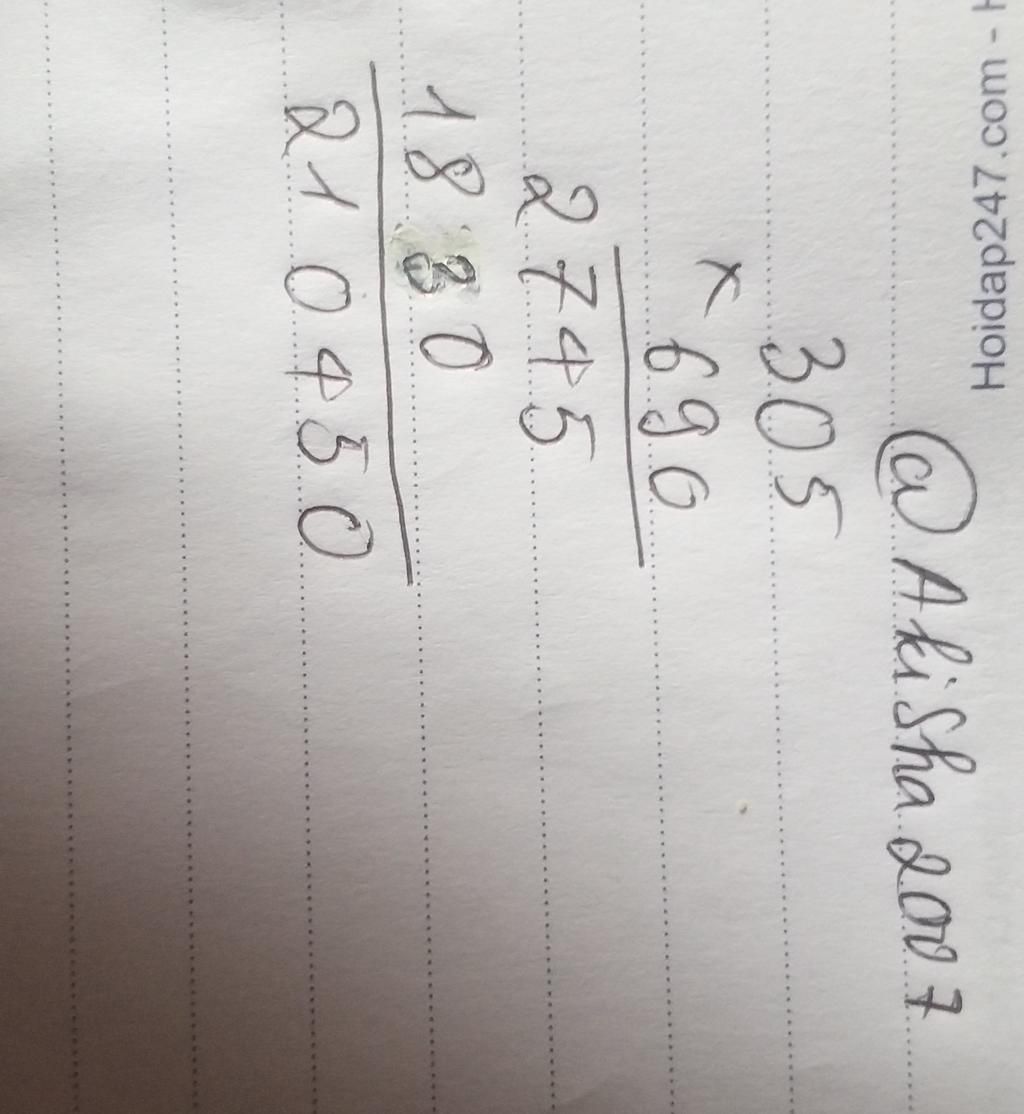 Hoidap247.com - H
@ Akisha 2007
305
×
690
2745
1830
210450